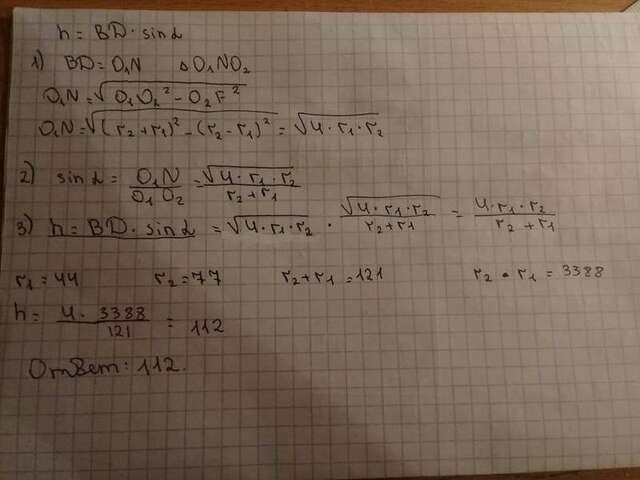 h = BD · sin α
1) BD = O₁N △O₁NO₂
O₁N = √(O₁O₂² - O₂F²)
O₁N = √((r₂+r₁)² - (r₂-r₁)²) = √(4·r₁·r₂)
2) sin α = O₁N / O₁O₂ = √(4·r₁·r₂) / (r₂+r₁)
3) h = BD · sin α = √(4·r₁·r₂) · √(4·r₁·r₂) / (r₂+r₁) = 4·r₁·r₂ / (r₂+r₁)
r₁ = 44 r₂ = 77 r₂+r₁ = 121 r₂ · r₁ = 3388
h = 4 · 3388 / 121 = 112
Ответ: 112.